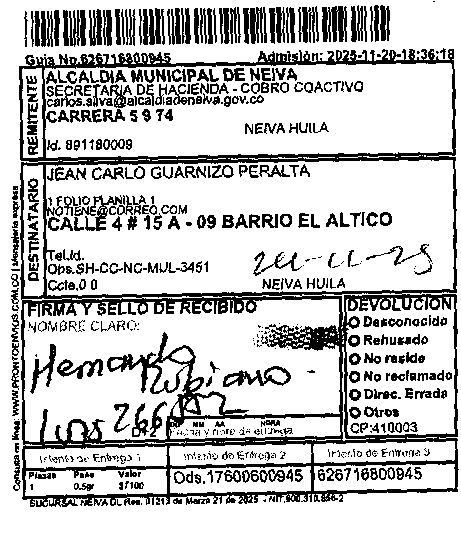 Guia No.626716800945 Admisión: 2025-11-20-18:36:18
REMITENTE
ALCALDIA MUNICIPAL DE NEIVA
SECRETARIA DE HACIENDA - COBRO COACTIVO
carlos.silva@alcaldiadeneiva.gov.co
CARRERA 5 9 74
NEIVA HUILA
Id. 891180009
DESTINATARIO
JEAN CARLO GUARNIZO PERALTA
1 FOLIO PLANILLA 1
NOTIENE@CORREO.COM
CALLE 4 # 15 A - 09 BARRIO EL ALTICO
Tel./d.
Obs.SH-CC-NC-MUL-3451
Ccto.0 0
NEIVA HUILA
FIRMA Y SELLO DE RECIBIDO
NOMBRE CLARO:
Hernando
Rubiano
DD MM AA HORA
Fecha y hora de entrega
DEVOLUCION
Desconocido
Rehusado
No reside
No reclamado
Direc. Errada
Otros
CP:410003
Intento de Entrega 1 Intento de Entrega 2 Intento de Entrega 3
Piezas Peso Valor
1 0.5gr $/100
Ods.17600600945 626716800945
Consulta en línea: WWW.PRONTOENVIOS.COM.CO | Mensajería expresa
SUCURSAL NEIVA DL Res. 01213 de Marzo 21 de 2025 - NIT.900.310.856-2